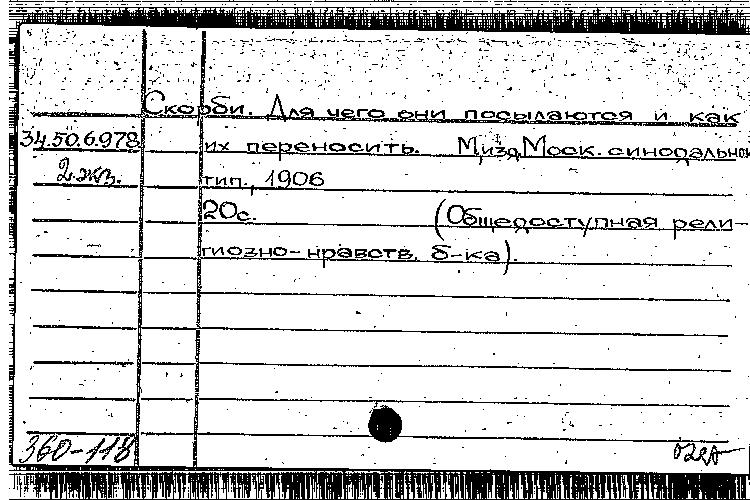 Скорби. Для чего они посылаются и как
34.50.6.978 их переносить. М., изд. Моск. синодальной
2 экз. тип., 1906
20с. (Общедоступная рели-
гиозно-нравств. б-ка).
360-118